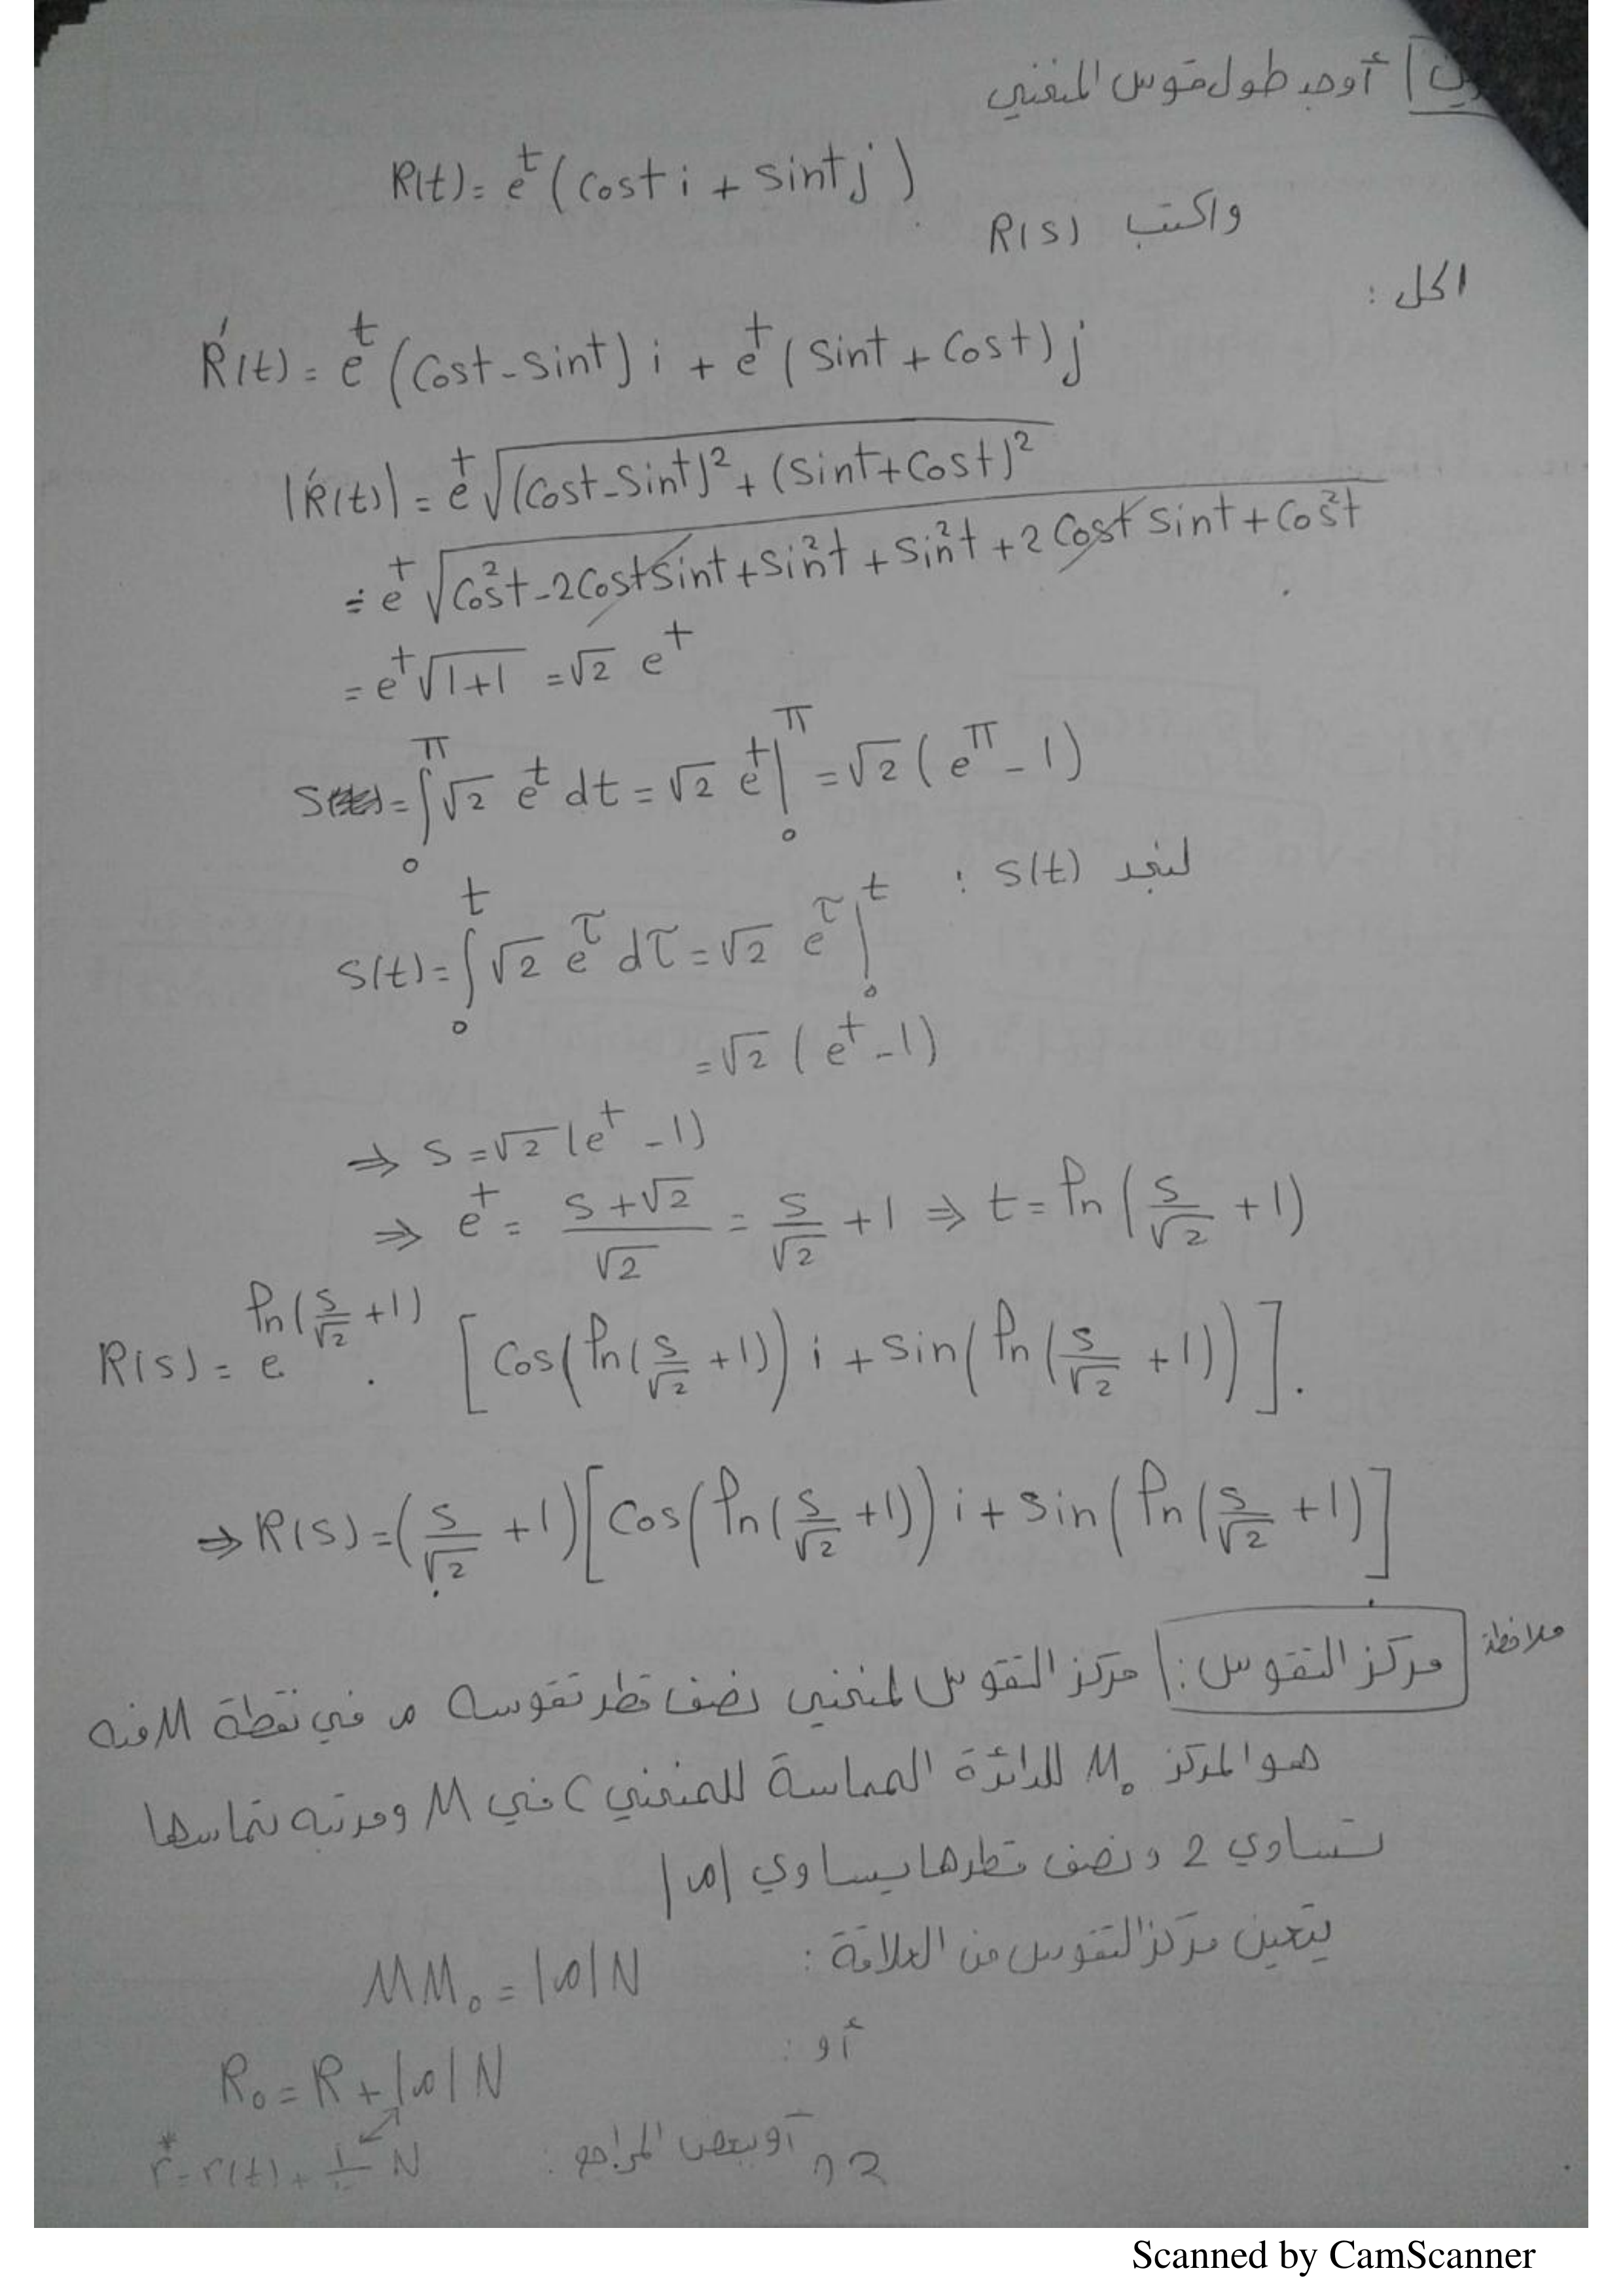 أوجد طول قوس المنحني
R(t) = e^t (cost i + sint j)
واكتب R(s)
الحل :
R'(t) = e^t (cost - sint) i + e^t (sint + cost) j
|R'(t)| = e^t √((cost - sint)² + (sint + cost)²)
= e^t √(cos²t - 2cost sint + sin²t + sin²t + 2 cost sint + cos²t)
= e^t √(1+1) = √2 e^t
S = ∫₀^π √2 e^t dt = √2 e^t |₀^π = √2 (e^π - 1)
لنجد S(t) :
S(t) = ∫₀^t √2 e^τ dτ = √2 e^τ |₀^t
= √2 (e^t - 1)
⇒ S = √2 (e^t - 1)
⇒ e^t = (S + √2)/√2 = S/√2 + 1 ⇒ t = ln(S/√2 + 1)
R(s) = e^{ln(S/√2 + 1)} . [cos(ln(S/√2 + 1)) i + sin(ln(S/√2 + 1))].
⇒ R(s) = (S/√2 + 1)[cos(ln(S/√2 + 1)) i + sin(ln(S/√2 + 1)]
ملاحظة مركز التقوس : مركز التقوس لمنحني نصف قطر تقوسه ρ في نقطة M منه
هو المركز M₀ للدائرة المماسة للمنحني C في M ومرتبه تماسها
تساوي 2 ونصف قطرها يساوي |ρ|
يتعين مركز التقوس من العلاقة :
MM₀ = |ρ| N
أو :
R₀ = R + |ρ| N
أو بعض المراجع :
r* = r(t) + N
Scanned by CamScanner